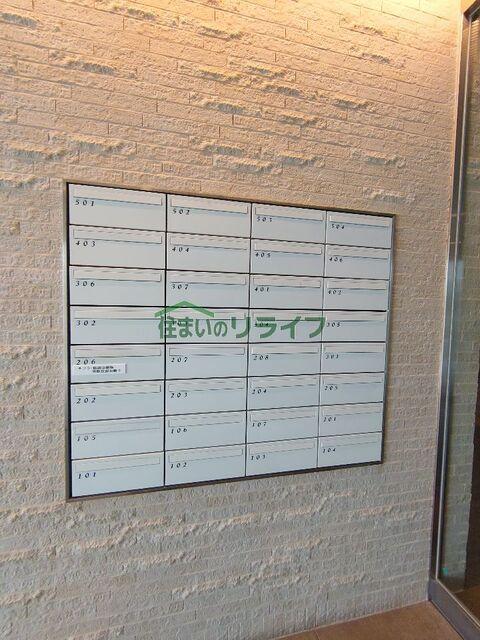 501 502 503 504
403 404 405 406
306 307 401 402
302 305
住まいのリライフ
206 207 208 301
202 203 204 205
105 106 107 201
101 102 103 104